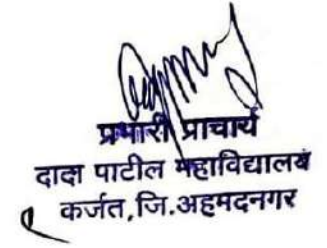 प्रभारी प्राचार्य
दादा पाटील महाविद्यालय
कर्जत,जि.अहमदनगर